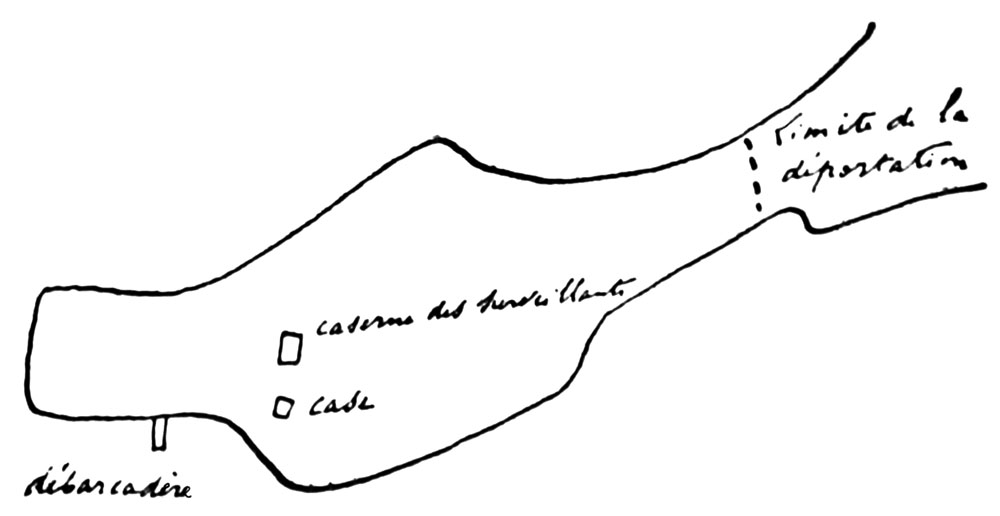 Limite de la
déportation
caserne des surveillants
case
débarcadère